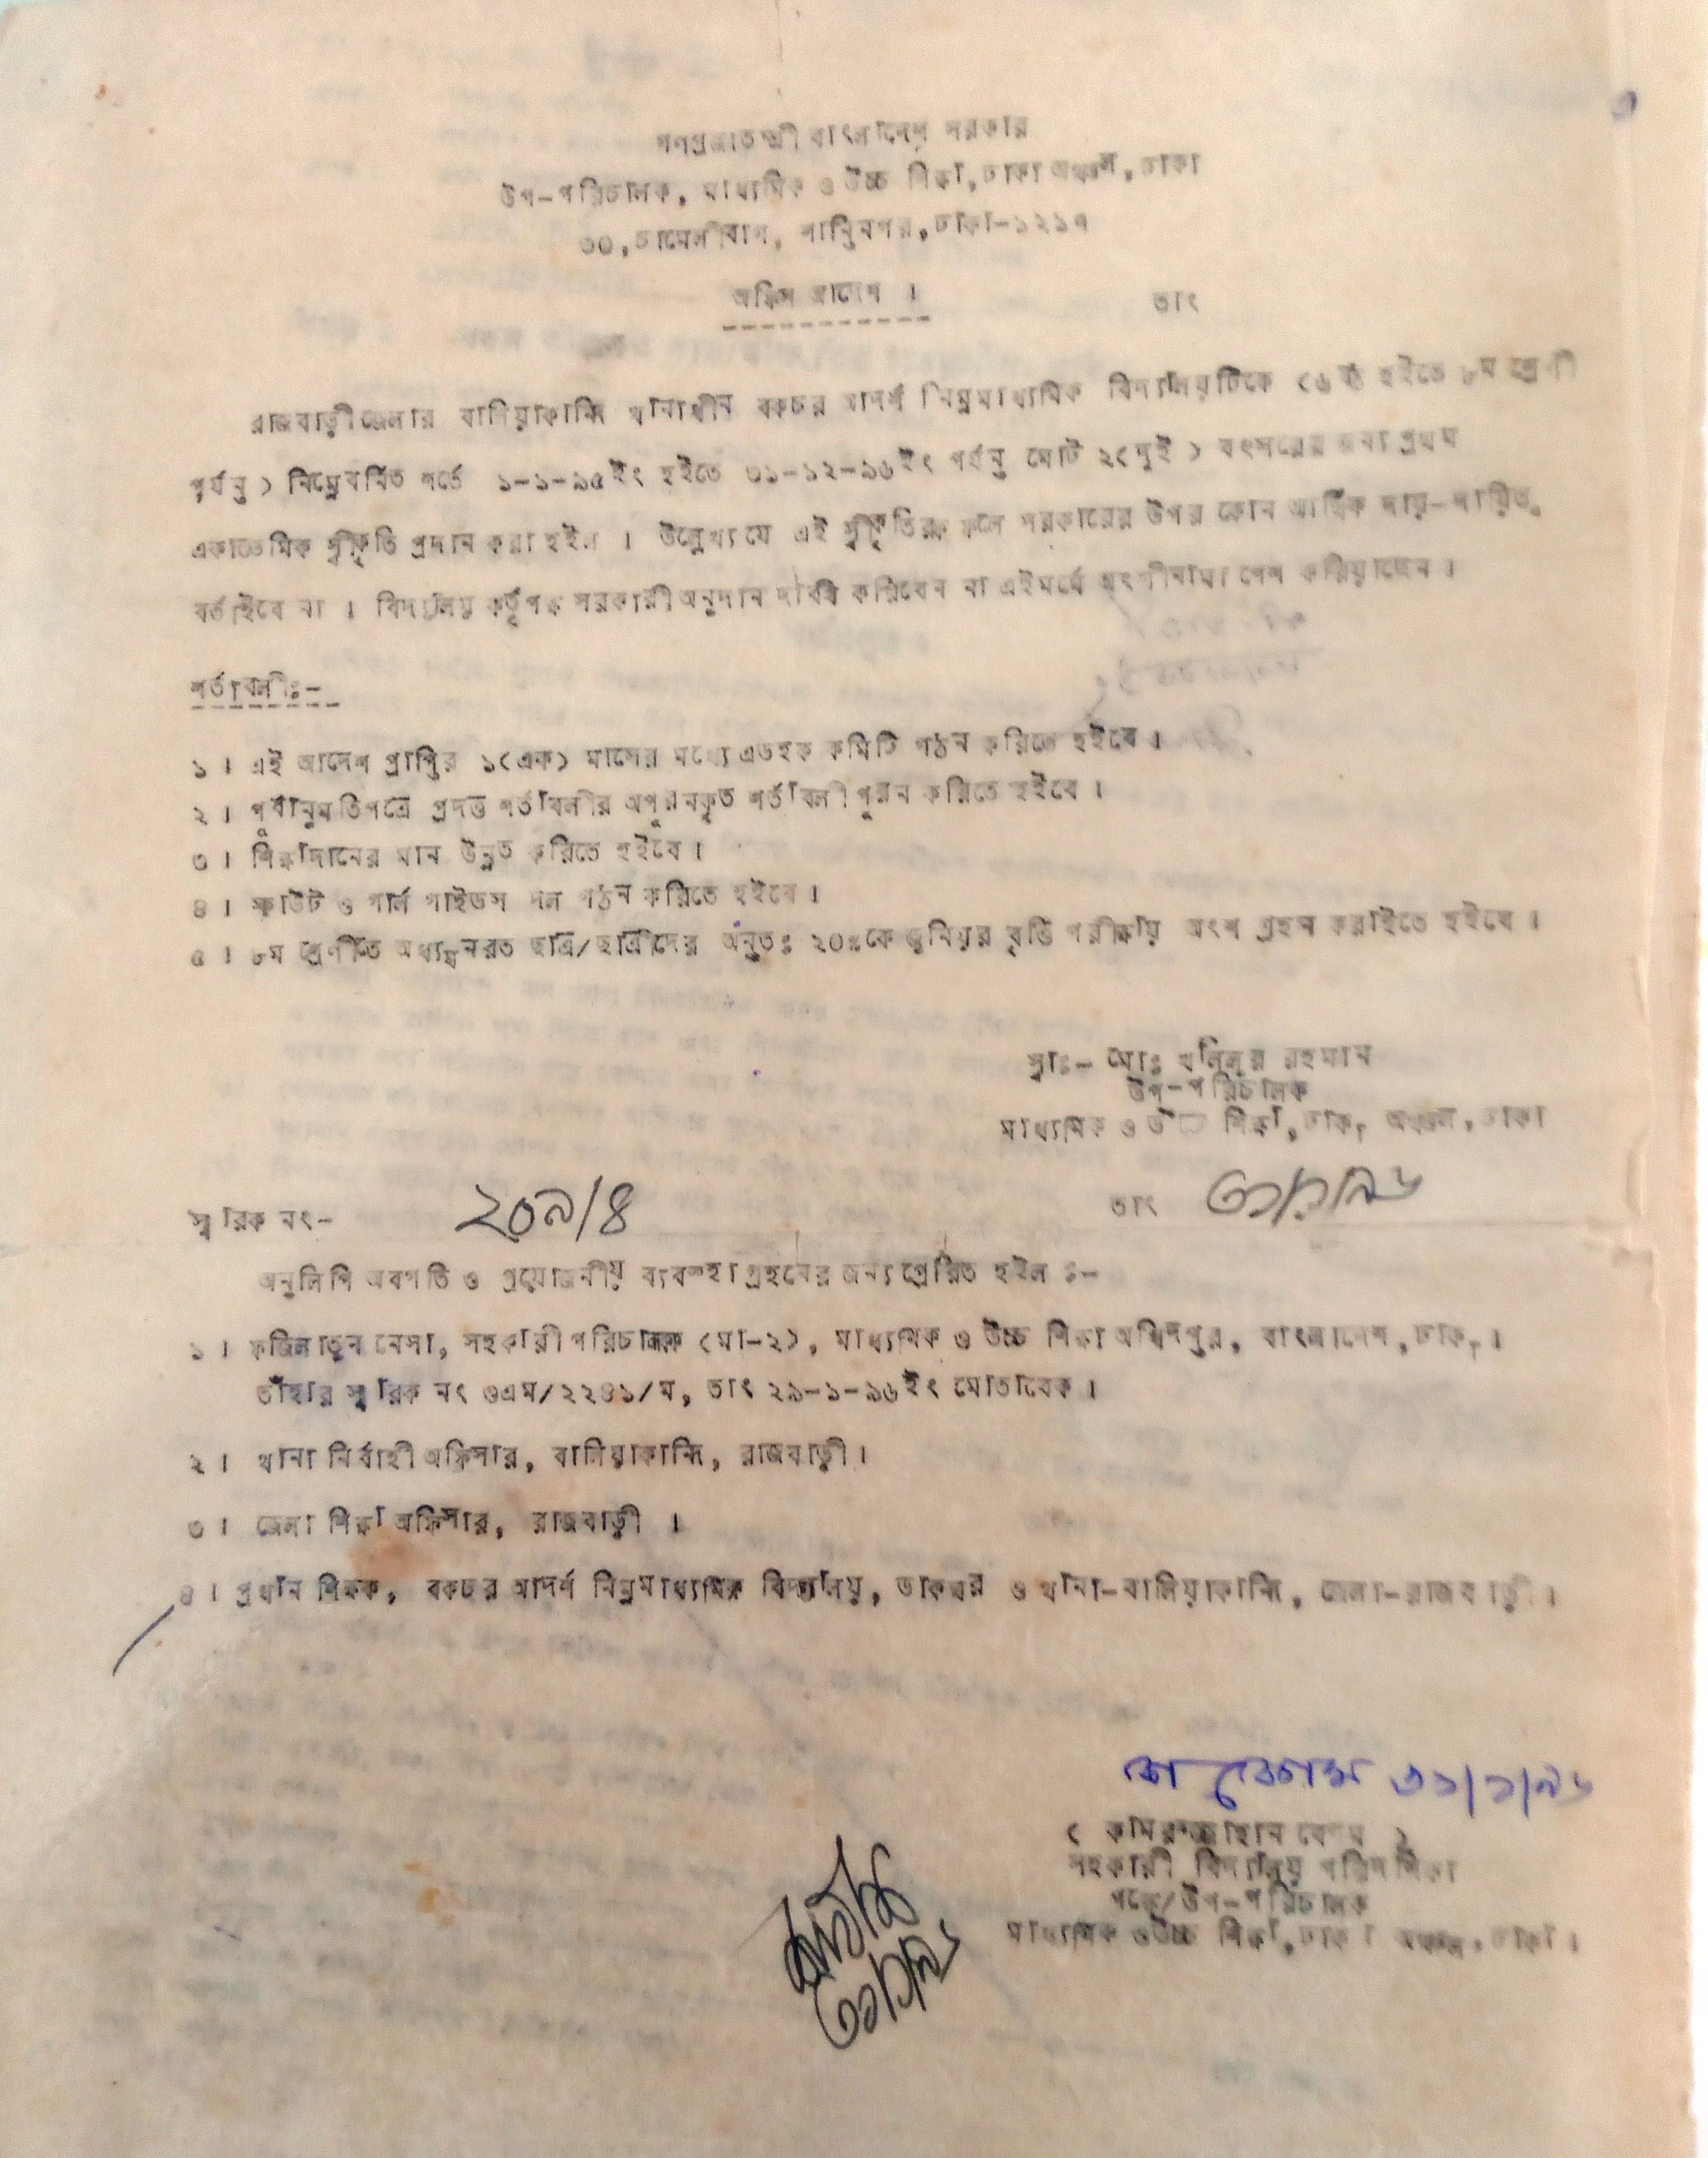 গণপ্রজাতন্ত্রী বাংলাদেশ সরকার
উপ-পরিচালক, মাধ্যমিক ও উচ্চ শিক্ষা,ঢাকা অঞ্চল,ঢাকা
৩০,চামেলীবাগ, শান্তিনগর,ঢাকা-১২১৭
অফিস আদেশ ।
তাং
রাজবাড়ী জেলার বালিয়াকান্দি থানাধীন বকচর আদর্শ নিম্নমাধ্যমিক বিদ্যালয়টিকে (৬ষ্ঠ হইতে ৮ম শ্রেণী
পর্যন্ত ) নিম্নেবর্নিত শর্তে ১-১-৯৫ইং হইতে ৩১-১২-৯৬ইং পর্যন্ত মোট ২(দুই ) বৎসরের জন্য প্রথম
একাডেমিক স্বীকৃতি প্রদান করা হইল । উল্লেখ্য যে এই স্বীকৃতির ফলে সরকারের উপর কোন আর্থিক দায়-দায়িত্ব
বর্তাইবে না । বিদ্যালয় কর্তৃপক্ষ সরকারী অনুদান দাবী করিবেন না এইমর্মে অংগীনামা পেশ করিয়াছেন ।
শর্তাবলীঃ-
১ । এই আদেশ প্রাপ্তির ১(এক) মাসের মধ্যে এডহক কমিটি গঠন করিতে হইবে ।
২ । পূর্বানুমতিপত্রে প্রদত্ত শর্তাবলীর অপূরনকৃত শর্তাবলী পূরন করিতে হইবে ।
৩ । শিক্ষাদানের মান উন্নত করিতে হইবে ।
৪ । স্কাউট ও গার্ল গাইডস দল গঠন করিতে হইবে ।
৫ । ৮ম শ্রেণীতে অধ্যয়নরত ছাত্র/ছাত্রীদের অন্ততঃ ২০%কে জুনিয়র বৃত্তি পরীক্ষায় অংশ গ্রহন করাইতে হইবে ।
স্বাঃ- মোঃ খলিলুর রহমান
উপ-পরিচালক
মাধ্যমিক ও উচ্চ শিক্ষা,ঢাকা অঞ্চল,ঢাকা
স্মারক নং- ২০৯/৪
তাং ৩১/১/৯৬
অনুলিপি অবগতি ও প্রয়োজনীয় ব্যবস্হা গ্রহনের জন্য প্রেরিত হইল ঃ-
১ । ফজিলাতুন নেসা, সহকারী পরিচালক (মা-২), মাধ্যমিক ও উচ্চ শিক্ষা অধিদপ্তর, বাংলাদেশ,ঢাকা ।
তাঁহার স্মারক নং ওএম/২২৪১/ম, তাং ২৯-১-৯৬ইং মোতাবেক ।
২ । থানা নির্বাহী অফিসার, বালিয়াকান্দি, রাজবাড়ী ।
৩ । জেলা শিক্ষা অফিসার, রাজবাড়ী ।
৪ । প্রধান শিক্ষক, বকচর আদর্শ নিম্নমাধ্যমিক বিদ্যালয়, ডাকঘর ও থানা-বালিয়াকান্দি, জেলা-রাজবাড়ী ।
৩১/১/৯৬
( কামরুজ্জাহান বেগম )
সহকারী বিদ্যালয় পরিদর্শিকা
পক্ষে/উপ-পরিচালক
মাধ্যমিক ও উচ্চ শিক্ষা,ঢাকা অঞ্চল,ঢাকা ।
৩১/১/৯৬